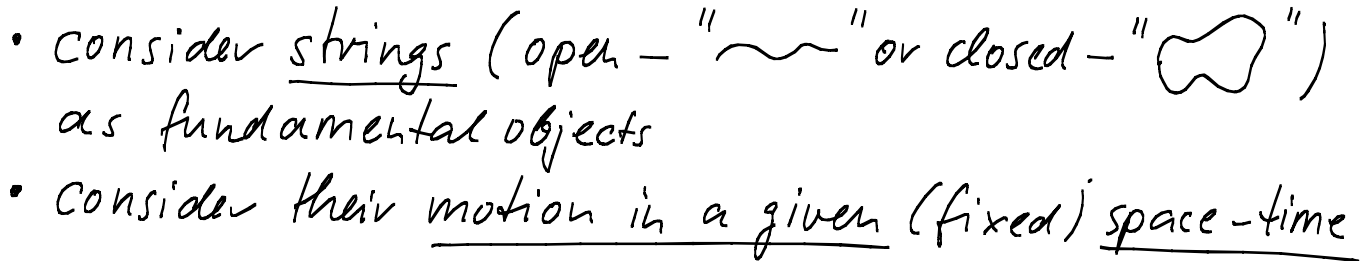 • consider strings (open – " " or closed – " ")
as fundamental objects
• consider their motion in a given (fixed) space-time